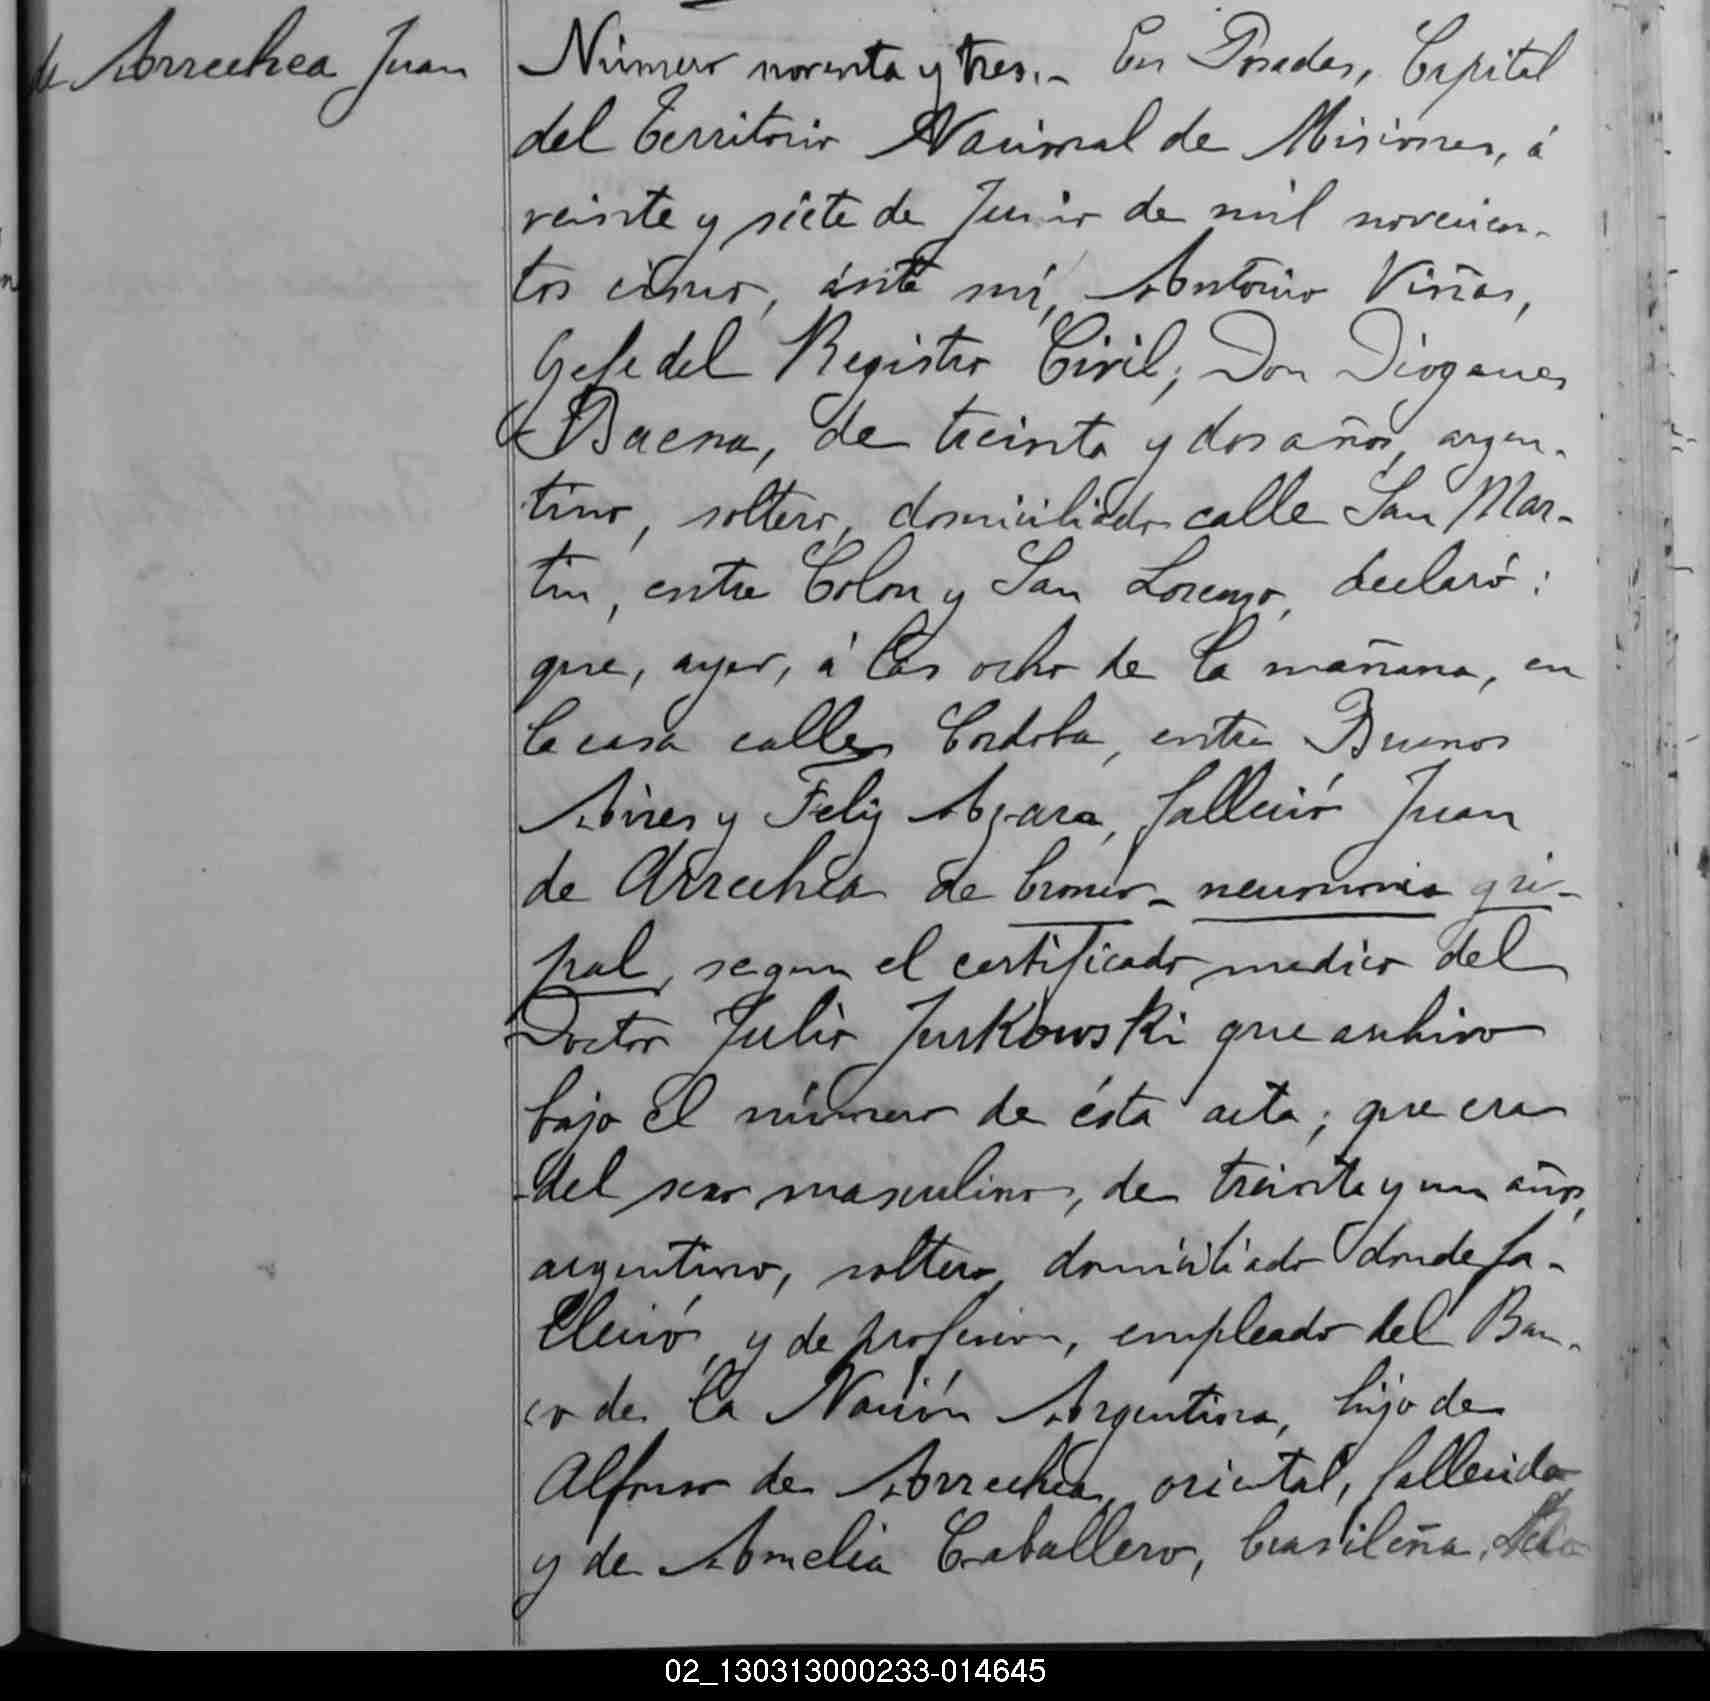 de Arrechea Juan
Número noventa y tres.- En Posadas, Capital
del Territorio Nacional de Misiones, á
veinte y siete de Junio de mil novecien-
tos cinco, ánte mí, Antonio Viñas,
Gefe del Registro Civil; Don Diogenes
Baena, de treinta y dos años, argen-
tino, soltero, domiciliado calle San Mar-
tin, entre Colon y San Lorenzo, declaró:
que, ayer, á las ocho de la mañana, en
la casa calle Cordoba, entre Buenos
Aires y Feliz Azara, falleció Juan
de Arrechea de bronco-neumonia gri-
pal, segun el certificado medico del
Doctor Julio Jurkowski que archivo
bajo el número de ésta acta; que era
del sexo masculino, de treinta y un años,
argentino, soltero, domiciliado donde fa-
lleció, y de profesion, empleado del Ban-
co de la Nación Argentina, hijo de
Alfonso de Arrechea, oriental, fallecido
y de Amelia Caballero, brasileña,
02_130313000233-014645